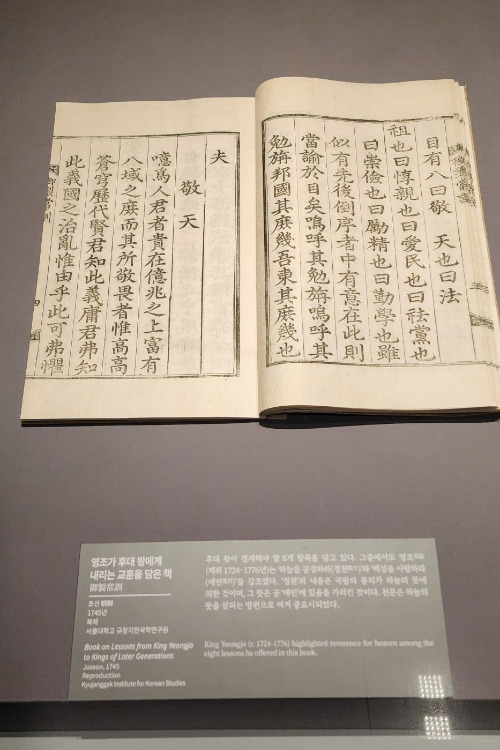 目有八曰敬 天也曰法
祖也曰惇親也曰愛民也曰祛黨也
曰崇儉也曰勵精也曰勤學也雖
似有先後倒序者中有意在此則
當諭於目矣嗚呼其勉旃嗚呼其
勉旃邦國其庶幾吾東其庶幾也
夫
敬天
噫爲人君者貴在億兆之上富有
八域之庶而其所敬畏者惟高高
蒼穹歷代賢君知此義庸君弗知
此義國之治亂惟由乎此可弗懼
영조가 후대 왕에게
내리는 교훈을 담은 책
御製常訓
조선 朝鮮
1745년
복제
서울대학교 규장각한국학연구원
Book on Lessons from King Yeongjo
to Kings of Later Generations
Joseon, 1745
Reproduction
Kyujanggak Institute for Korean Studies
후대 왕이 경계해야 할 8개 항목을 담고 있다. 그중에서도 영조英祖
(재위 1724-1776년)는 '하늘을 공경하라(경천敬天)'와 '백성을 사랑하라
(애민愛民)'를 강조했다. '경천'의 내용은 국왕의 통치가 하늘의 뜻에
의한 것이며, 그 뜻은 곧 '애민'에 있음을 가리킨 것이다. 천문은 하늘의
뜻을 살피는 방편으로 여겨 중요시되었다.
King Yeongjo (r. 1724-1776) highlighted reverence for heaven among the
eight lessons he offered in this book.